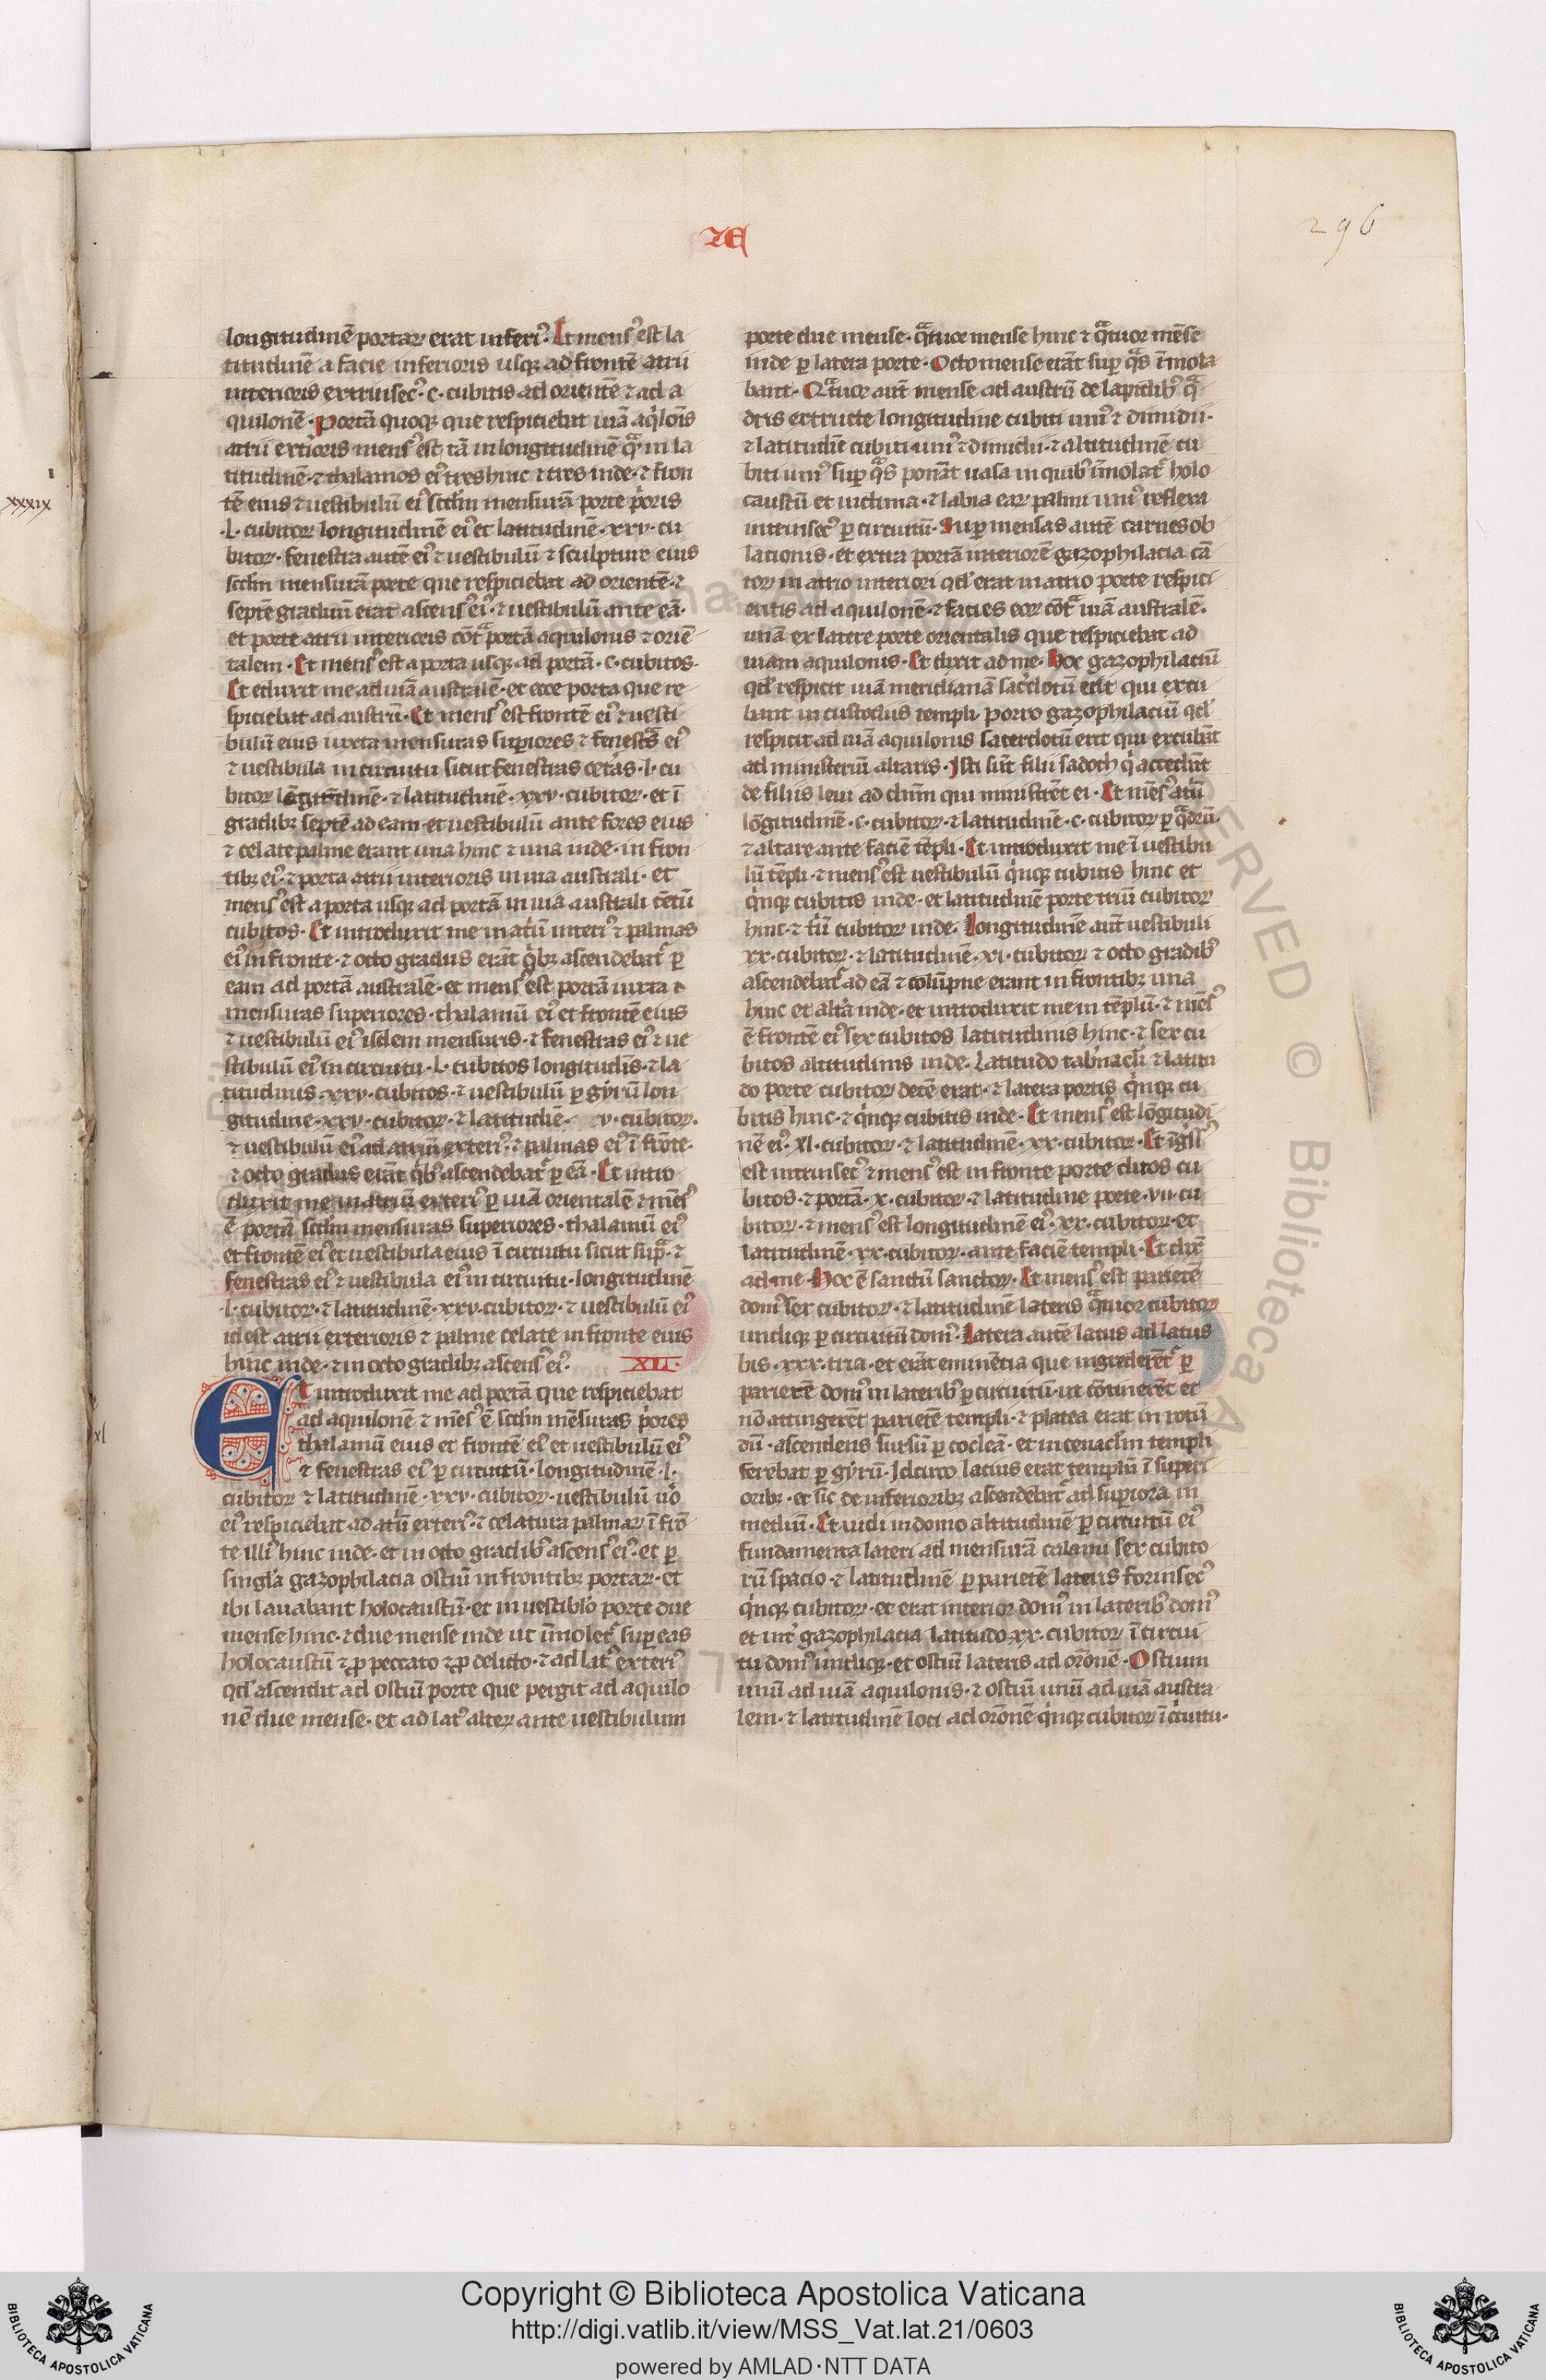 296
longitudinē portaꝝ erat inferi⁹. Et mens⁹ est la
titudinē a facie inferioris usqꝫ ad frontē atrii
interioris extrinsec⁹ · c · cubitis ad orientē ⁊ ad a
quilonē · Portā quoqꝫ que respiciebat uiā aq̇lonis
atrii exterioris mens⁹ est tā in longitudinē qᷓ in la
titudinē · ⁊ thalamos ei⁹ tres hinc ⁊ tres inde · ⁊ fron
tē eius ⁊ uestibulū ei⁹ scdm mensurā porte p̄oris
· l · cubitoꝝ longitudinē ei⁹ et latitudinē · xxv · cu
bitoꝝ · fenestra autē ei⁹ ⁊ uestibulū ⁊ sculpture eius
scdm mensurā porte que respiciebat ad orientē · ⁊
septē graduū erat ascens⁹ ei⁹ · ⁊ uestibulū ante eā ·
et porte atrii interioris cōtᷓ portā aquilonis ⁊ oriē
talem · Et mens⁹ est a porta usqꝫ ad portā · c · cubitos ·
Et eduxit me ad uiā australē · et ecce porta que re
spiciebat ad austrū · Et mens⁹ est frontē ei⁹ ⁊ uesti
bulū eius iuxta mensuras supiores ⁊ fenestᷓs ei⁹
⁊ uestibula in circuitu sicut fenestras cetᷓas · l · cu
bitoꝝ lōgitudinē · ⁊ latitudinē · xxv · cubitoꝝ · et ī
gradibꝫ septē ad eam · et uestibulū ante fores eius
⁊ celate palme erant una hinc ⁊ una inde · in fron
tibꝫ ei⁹ · ⁊ porta atrii interioris in uia australi · et
mens⁹ est a porta usqꝫ ad portā in uiā australi cētū
cubitos · Et introduxit me in atriū interi⁹ ⁊ palmas
ei⁹ in fronte · ⁊ octo gradus erāt q̇bꝫ ascendebat᷑ ꝑ
eam ad portā australē · et mens⁹ est portā iuxta
mensuras superiores · thalamū ei⁹ et frontē eius
⁊ uestibulū ei⁹ isdem mensuris · ⁊ fenestras ei⁹ ⁊ ue
stibulū ei⁹ in circuitu · l · cubitos longitudīs · ⁊ la
titudinis · xxv · cubitos · ⁊ uestibulū ꝑ gyrū lon
gitudine · xxv · cubitoꝝ · ⁊ latitudīe · v · cubitoꝝ ·
⁊ uestibulū ei⁹ ad atriū exteri⁹ · ⁊ palmas ei⁹ ī frōte ·
⁊ octo gradus erāt q̇b⁹ ascendebat᷑ ꝑ eā · Et intro
duxit me in atriū exteri⁹ ꝑ uiā orientalē ⁊ mēs⁹
ē portā scdm mensuras superiores · thalamū ei⁹
et frontē ei⁹ et uestibula eius ī circuitu sicut supᷓ · ⁊
fenestras ei⁹ ⁊ uestibula ei⁹ in circuitu · longitudinē
· l · cubitoꝝ · ⁊ latitudinē · xxv · cubitoꝝ · ⁊ uestibulū ei⁹
id est atrii exterioris ⁊ palme celate in fronte eius
hinc inde · ⁊ in octo gradibꝫ ascens⁹ ei⁹ · XLI ·
Et introduxit me ad portā que respiciebat
ad aquilonē ⁊ mēs⁹ ē scdm mēsuras p̄ores
thalamū eius et frontē ei⁹ et uestibulū ei⁹
⁊ fenestras ei⁹ ꝑ circuitū · longitudinē · l ·
cubitoꝝ ⁊ latitudinē · xxv · cubitoꝝ · uestibulū u̇o
ei⁹ respiciebat ad atriū exteri⁹ · ⁊ celatura palmaꝝ ī frō
te illi⁹ hinc inde · et in octo gradib⁹ ascens⁹ ei⁹ · et ꝑ
singla gazophilacia ostiū in frontibꝫ portaꝝ · et
ibi lauabant holocaustū · et in uestiblo porte due
mense hinc · ⁊ due mense inde ut īmolet᷑ sup eas
holocaustū ⁊ ꝓ peccato ⁊ ꝓ delicto · ⁊ ad lat⁹ exteri⁹
qd ascendit ad ostiū porte que pergit ad aquilo
nē due mense · et ad lat⁹ alteꝝ ante uestibulum
porte due mense · qᷓtuor mense hinc ⁊ qᷓtuor mēse
inde ꝑ latera porte · Octo mense erāt sup qᷓs īmola
bant · Qᷓtuor aut̄ mense ad austrū de lapidib⁹ qᷓ
dris extructe longitudine cubiti uni⁹ ⁊ dimidii ·
⁊ latitudīe cubiti uni⁹ ⁊ dimidii · ⁊ altitudinē cu
biti uni⁹ sup qᷓs ponāt uasa in quib⁹ īmolat᷑ holo
caustū et uictima · ⁊ labia eaꝝ palmi uni⁹ reflexa
intrinsec⁹ ꝑ circuitū · Sup mensas autē carnes ob
lationis · et extra portā interiorē gazophilacia cā
toꝝ in atrio interiori qd erat in atrio porte respici
entis ad aquilonē · ⁊ facies eoꝝ cōtᷓ uiā australē ·
unā ex latere porte orientalis que respiciebat ad
uiam aquilonis · Et dixit ad me · Hoc gazophilaciū
qd respicit uiā meridianā sacdotū erit qui excu
bant in custodiis templi · Porro gazophilaciū qd
respicit ad uiā aquilonis sacerdotū erit qui excubāt
ad ministeriū altaris · Isti sūt filii sadoch q̇ accedūt
de filiis leui ad dnm qui ministrēt ei · Et mēs⁹ atriū
lōgitudinē · c · cubitoꝝ · ⁊ latitudinē · c · cubitoꝝ ꝑ qᷓdrū ·
⁊ altare ante faciē tēpli · Et introduxit me ī uestibu
lū tēpli · ⁊ mens⁹ est uestibulū q̇nqꝫ cubitis hinc et
q̇nqꝫ cubitis inde · et latitudinē porte triū cubitoꝝ
hinc · ⁊ triū cubitoꝝ inde · Longitudinē aut̄ uestibuli
xx · cubitoꝝ · ⁊ latitudinē · xi · cubitoꝝ ⁊ octo gradib⁹
ascendebat᷑ ad eā ⁊ colūpne erant in frontibꝫ una
hinc et altᷓa inde · et introduxit me in tēplū · ⁊ mēs⁹
ē frontē ei⁹ sex cubitos latitudinis hinc · ⁊ sex cu
bitos altitudinis inde · Latitudo tabnacli ⁊ latitu
do porte cubitoꝝ decē erat · ⁊ latera portis q̇nqꝫ cu
bitis hinc · ⁊ q̇nqꝫ cubitis inde · Et mens⁹ est lōgitudi
nē ei⁹ · xl · cubitoꝝ · ⁊ latitudinē · xx · cubitoꝝ · Et īgss⁹
est intrinsec⁹ ⁊ mens⁹ est in fronte porte duos cu
bitos · ⁊ portā · x · cubitoꝝ · ⁊ latitudine porte · vii · cu
bitoꝝ · ⁊ mens⁹ est longitudinē ei⁹ · xx · cubitoꝝ · et
latitudinē · xx · cubitoꝝ · ante faciē templi · Et dixt̄
ad me · Hoc ē sanctū sanctoꝝ · Et mens⁹ est parietē
dom⁹ sex cubitoꝝ · ⁊ latitudinē lateris qᷓtuor cubitoꝝ
undiqꝫ ꝑ circuitū dom⁹ · Latera autē latus ad latus
bis · xxx · tria · et erāt eminētia que ingrederēt᷑ ꝑ
parietē dom⁹ in laterib⁹ ꝑ circuitū · ut cōtinerēt et
nō attingerēt parietē templi · ⁊ platea erat in rotū
dū · ascendens sursū ꝑ cocleā · et in cenaclm templi
ferebat ꝑ gyrū · Idcirco latius erat templū ī superi
oribꝫ · et sic de inferioribꝫ ascendebat᷑ ad supiora in
mediū · Et uidi in domo altitudinē ꝑ circuitū ei⁹
fundamenta lateri ad mensurā calami sex cubito
rū spacio · ⁊ latitudinē ꝑ parietē lateris forinsec⁹
q̇nqꝫ cubitoꝝ · et erat interior dom⁹ in laterib⁹ dom⁹
et int̄ gazophilacia latitudo xx · cubitoꝝ ī circui
tu dom⁹ undiqꝫ · et ostiū lateris ad orōnē · Ostium
unū ad uiā aquilonis · ⁊ ostiū unū ad uiā austra
lem · ⁊ latitudinē loci ad orōnē q̇nqꝫ cubitoꝝ ī cꝛuitu ·
xxxix
xl
Copyright © Biblioteca Apostolica Vaticana
http://digi.vatlib.it/view/MSS_Vat.lat.21/0603
powered by AMLAD·NTT DATA
BIBLIOTECA APOSTOLICA VATICANA
BIBLIOTECA APOSTOLICA VATICANA